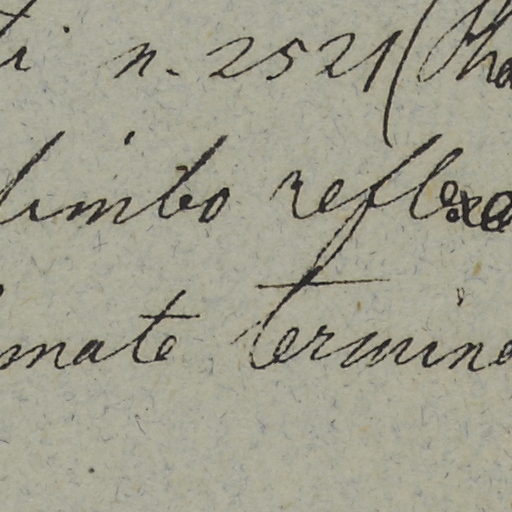 ti n. 2521 (Pha
limbo reflexo
mate termina